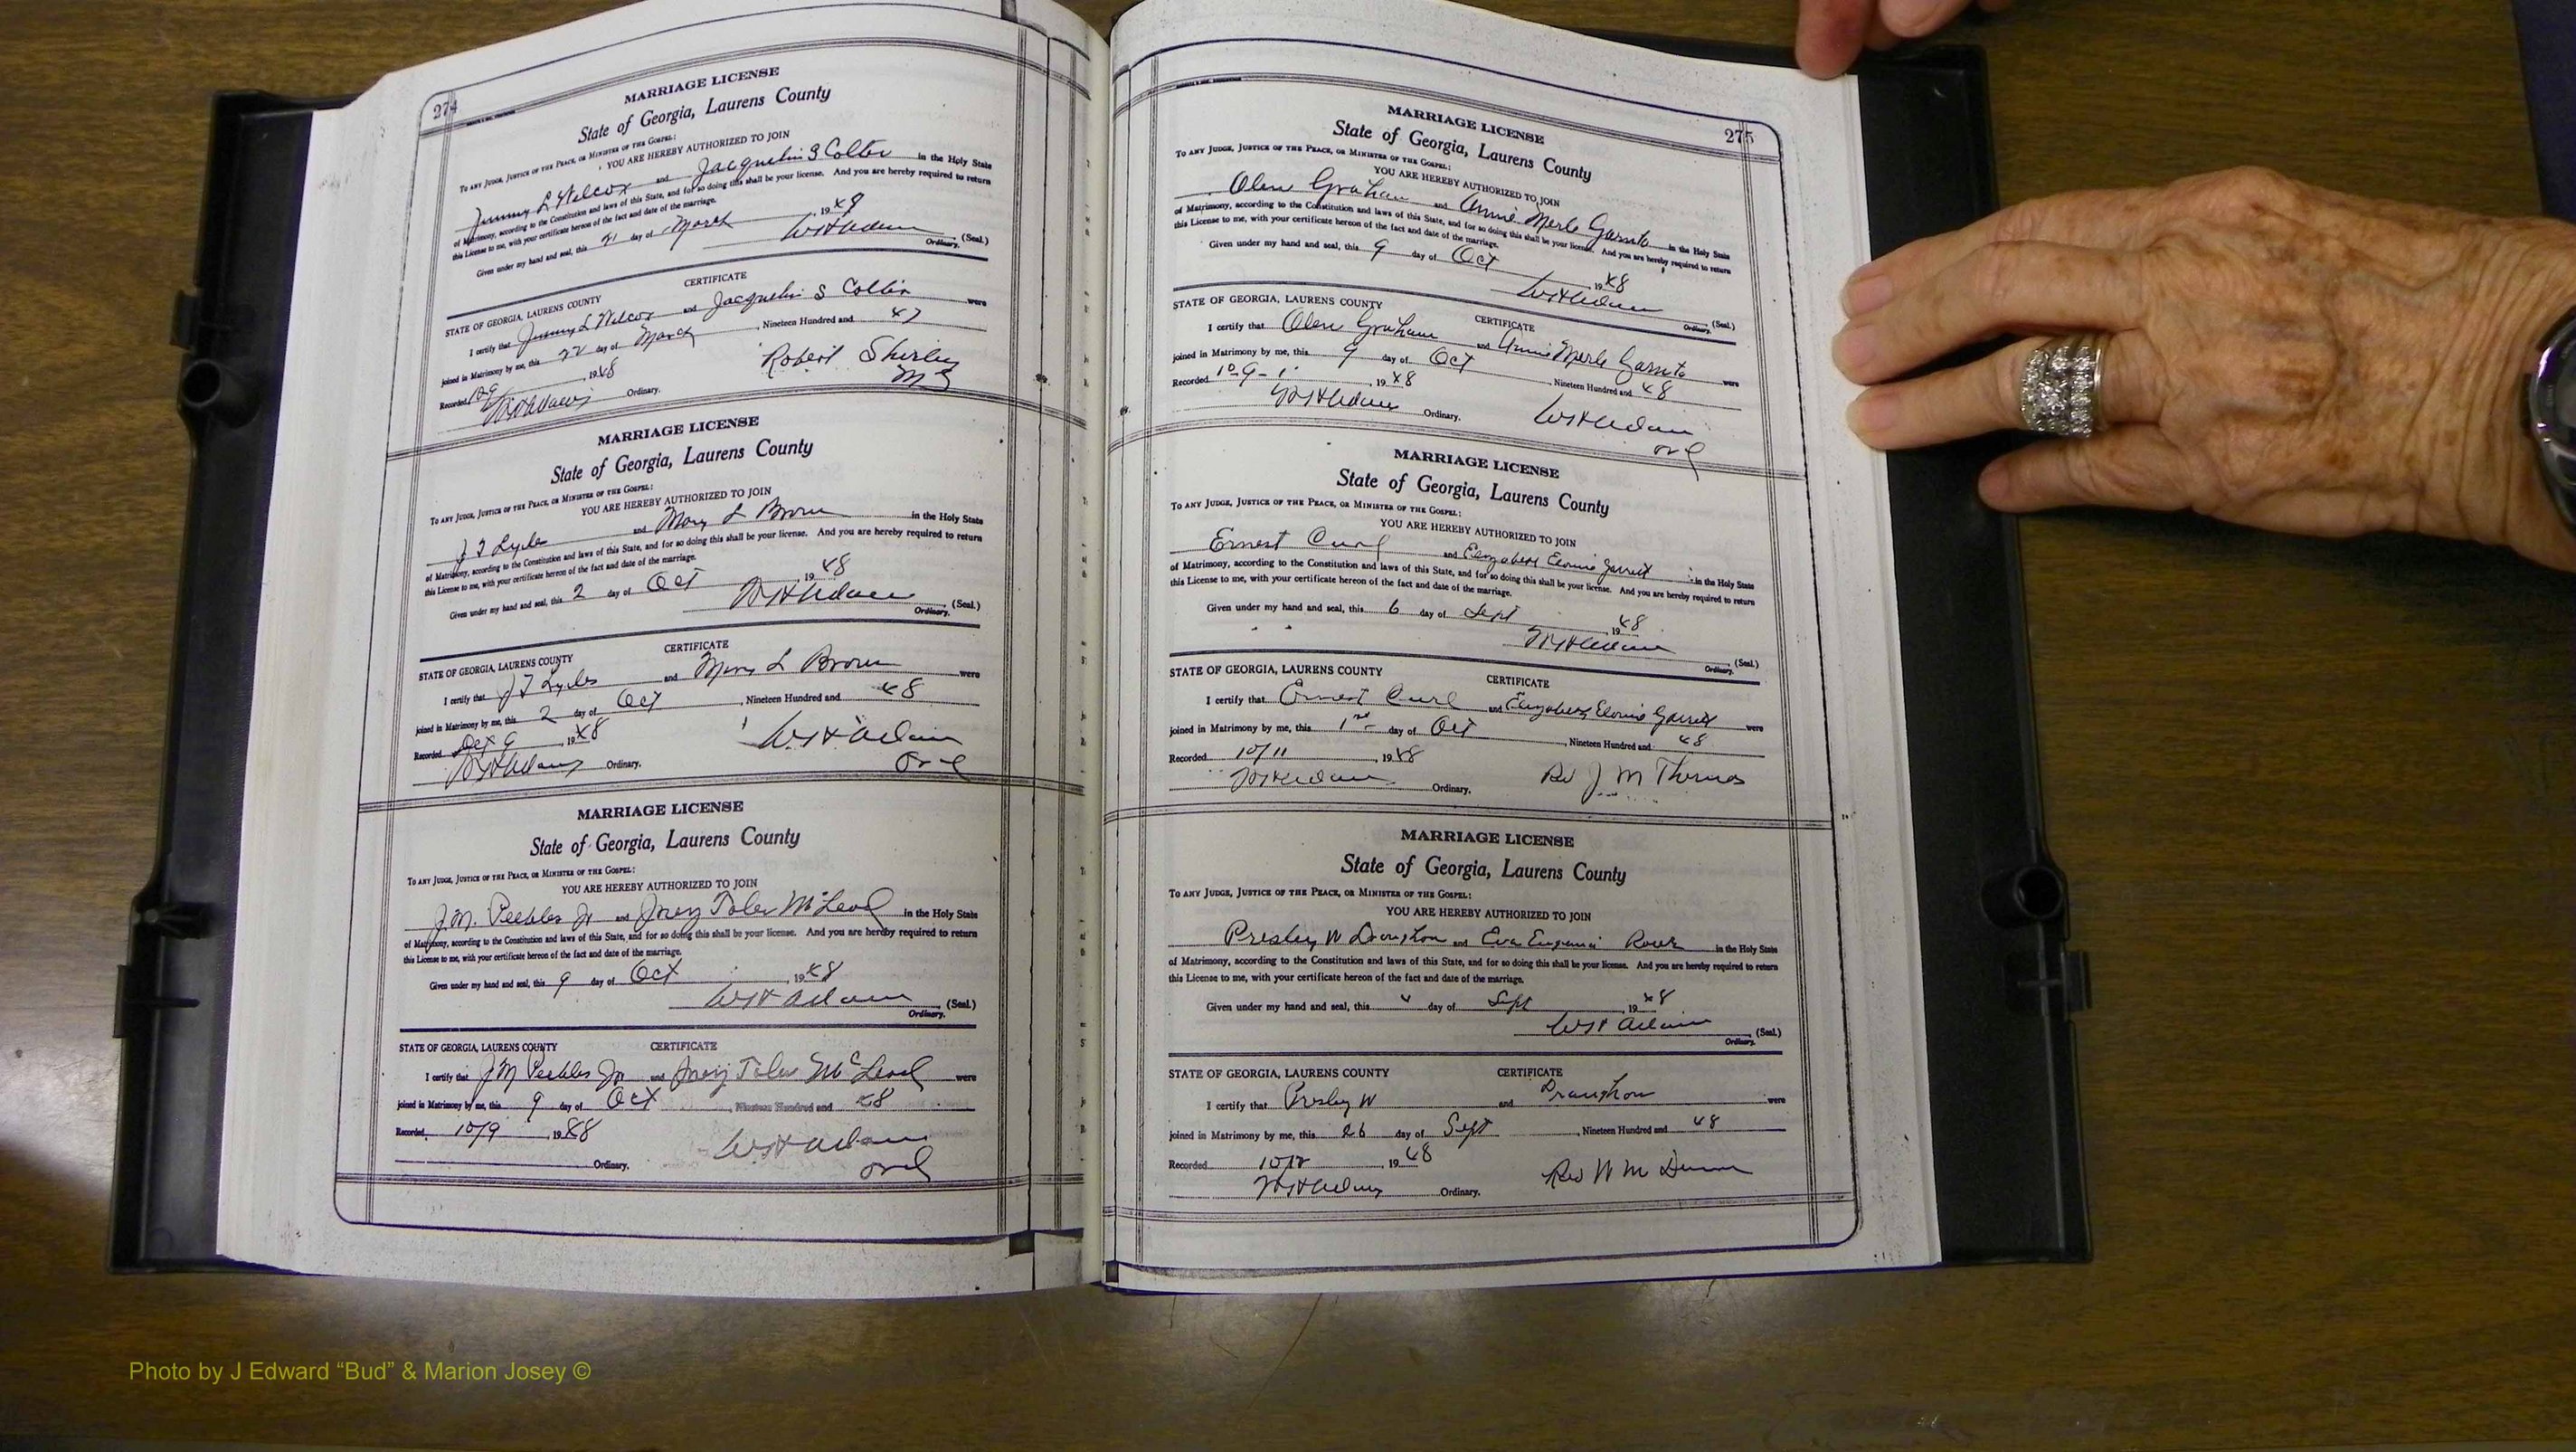 274
MARRIAGE LICENSE
State of Georgia, Laurens County
To ANY JUDGE, JUSTICE OF THE PEACE, OR MINISTER OF THE GOSPEL:
YOU ARE HEREBY AUTHORIZED TO JOIN
Jimmy L Wilcox and Jacquelin S Collin in the Holy State
of Matrimony, according to the Constitution and laws of this State, and for so doing this shall be your license. And you are hereby required to return
this License to me, with your certificate hereon of the fact and date of the marriage.
Given under my hand and seal, this 21 day of March, 1947
W H Adams (Seal.)
Ordinary.
CERTIFICATE
STATE OF GEORGIA, LAURENS COUNTY
I certify that Jimmy L Wilcox and Jacquelin S Collin were
joined in Matrimony by me, this 22 day of March, Nineteen Hundred and 47
Recorded 10/9, 1948 Robert Shirley
W H Adams Ordinary. M G
MARRIAGE LICENSE
State of Georgia, Laurens County
To ANY JUDGE, JUSTICE OF THE PEACE, OR MINISTER OF THE GOSPEL:
YOU ARE HEREBY AUTHORIZED TO JOIN
J T Lyles and Mary L Brown in the Holy State
of Matrimony, according to the Constitution and laws of this State, and for so doing this shall be your license. And you are hereby required to return
this License to me, with your certificate hereon of the fact and date of the marriage.
Given under my hand and seal, this 2 day of Oct, 1948
W H Adams (Seal.)
Ordinary.
CERTIFICATE
STATE OF GEORGIA, LAURENS COUNTY
I certify that J T Lyles and Mary L Brown were
joined in Matrimony by me, this 2 day of Oct, Nineteen Hundred and 48
Recorded Oct 9, 1948 W H Adams
W H Adams Ordinary. Ord
MARRIAGE LICENSE
State of Georgia, Laurens County
To ANY JUDGE, JUSTICE OF THE PEACE, OR MINISTER OF THE GOSPEL:
YOU ARE HEREBY AUTHORIZED TO JOIN
J.M. Peebles Jr and Toler McLeod in the Holy State
of Matrimony, according to the Constitution and laws of this State, and for so doing this shall be your license. And you are hereby required to return
this License to me, with your certificate hereon of the fact and date of the marriage.
Given under my hand and seal, this 9 day of Oct, 1948
W H Adams (Seal.)
Ordinary.
STATE OF GEORGIA, LAURENS COUNTY CERTIFICATE
I certify that J M Peebles Jr and Toler McLeod were
joined in Matrimony by me, this 9 day of Oct, Nineteen Hundred and 48
Recorded, 10/9, 1948 W H Adams
Ordinary. Ord
275
MARRIAGE LICENSE
State of Georgia, Laurens County
To ANY JUDGE, JUSTICE OF THE PEACE, OR MINISTER OF THE GOSPEL:
YOU ARE HEREBY AUTHORIZED TO JOIN
Olen Graham and Annie Merle in the Holy State
of Matrimony, according to the Constitution and laws of this State, and for so doing this shall be your license. And you are hereby required to return
this License to me, with your certificate hereon of the fact and date of the marriage.
Given under my hand and seal, this 9 day of Oct 1948
W H Adams (Seal.)
Ordinary.
STATE OF GEORGIA, LAURENS COUNTY CERTIFICATE
I certify that Olen Graham and Annie Merle were
joined in Matrimony by me, this 9 day of Oct, Nineteen Hundred and 48
Recorded 10-9-, 1948
W H Adams Ordinary. W H Adams
Ord
MARRIAGE LICENSE
State of Georgia, Laurens County
To ANY JUDGE, JUSTICE OF THE PEACE, OR MINISTER OF THE GOSPEL:
YOU ARE HEREBY AUTHORIZED TO JOIN
Ernest Curl and Elizabeth Elouise Garrett in the Holy State
of Matrimony, according to the Constitution and laws of this State, and for so doing this shall be your license. And you are hereby required to return
this License to me, with your certificate hereon of the fact and date of the marriage.
Given under my hand and seal, this 6 day of Sept, 1948
W H Adams (Seal.)
Ordinary.
STATE OF GEORGIA, LAURENS COUNTY CERTIFICATE
I certify that Ernest Curl and Elizabeth Elouise Garrett were
joined in Matrimony by me, this 1st day of Oct, Nineteen Hundred and 48
Recorded 10/11, 1948
W H Adams Ordinary. Rev J M Thomas
MARRIAGE LICENSE
State of Georgia, Laurens County
To ANY JUDGE, JUSTICE OF THE PEACE, OR MINISTER OF THE GOSPEL:
YOU ARE HEREBY AUTHORIZED TO JOIN
Presley W Draughon and Eva Eugenia in the Holy State
of Matrimony, according to the Constitution and laws of this State, and for so doing this shall be your license. And you are hereby required to return
this License to me, with your certificate hereon of the fact and date of the marriage.
Given under my hand and seal, this day of Sept, 1948
W H Adams (Seal.)
Ordinary.
STATE OF GEORGIA, LAURENS COUNTY CERTIFICATE
I certify that Presley W and Draughon were
joined in Matrimony by me, this 26 day of Sept, Nineteen Hundred and 48
Recorded 10/12, 1948
W H Adams Ordinary. Rev W M Dunn
Photo by J Edward “Bud” & Marion Josey ©